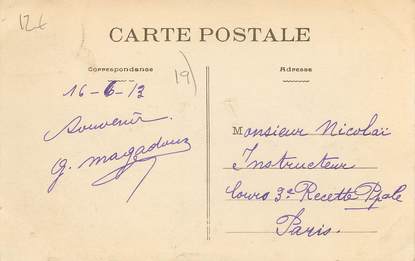 12€
CARTE POSTALE
Correspondance
Adresse
19)
16-6-13
Souvenir.
Monsieur Nicolaï
G. Magadoux
Instructeur
Cours 3e Recette Ppale
Paris.